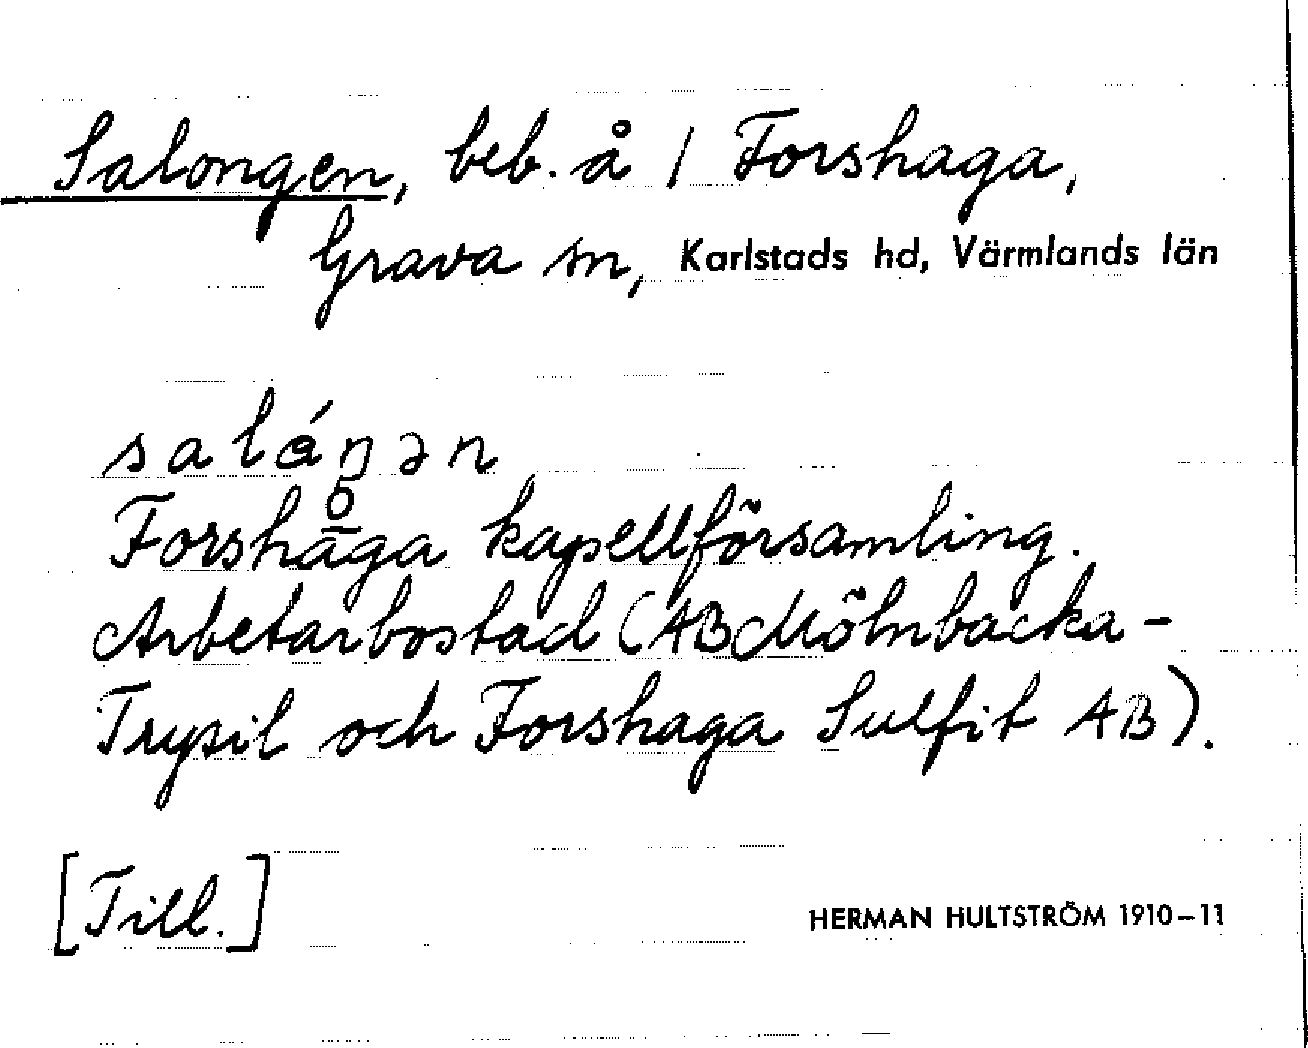 Salongen, beb. å / Forshaga,
Grava sn, Karlstads hd, Värmlands län
saláŋən
Forshåga kapellförsamling.
Arbetarbostad (AB Mölnbacka-
Trysil och Forshaga Sulfit AB).
[Till.]
HERMAN HULTSTRÖM 1910–11